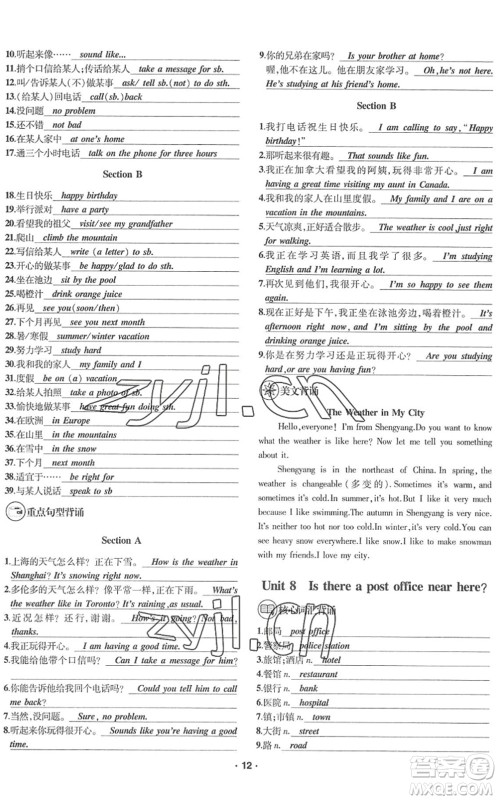 10.听起来像…… sound like...
11.捎个口信给某人;传话给某人 take a message for sb.
12.叫/告诉某人(不)做某事 ask/ tell sb.(not) to do sth.
13.(给某人)回电话 call(sb.)back
14.没问题 no problem
15.还不错 not bad
16.在某人家中 at one's home
17.通三个小时电话 talk on the phone for three hours
Section B
18.生日快乐 happy birthday
19.举行派对 have a party
20.看望我的祖父 visit/see my grandfather
21.爬山 climb the mountain
22.写信给某人 write (a letter) to sb.
23.开心的做某事 be happy/glad to do sth.
24.坐在池边 sit by the pool
25.喝橙汁 drink orange juice
26.再见 see you(soon/then)
27.下个月再见 see you next month
28.暑/寒假 summer/winter vacation
29.努力学习 study hard
30.我和我的家人 my family and I
31.度假 be on (a) vacation
32.给某人拍照 take a photo of sb.
33.愉快地做某事 have great fun doing sth.
34.在欧洲 in Europe
35.在山里 in the mountains
36.在雪中 in the snow
37.下个月 next month
38.适宜于…… be right for
39.与某人说话 speak to sb
重点句型背诵
Section A
1.上海的天气怎么样? 正在下雪。 How is the weather in
Shanghai? It's snowing right now.
2.多伦多的天气怎么样? 像平常一样正在下雨。 What's
the weather like in Toronto? It's raining ,as usual.
3.近况怎样? 还行,谢谢。 How's it going? Not bad,
thanks.
4.我正玩得开心。 I am having a good time.
5.我能给他捎个口信吗? Can I take a message for him?
6.你能告诉他给我回个电话吗? Could you tell him to call
me back?
7.当然,没问题。 Sure, no problem.
8.听起来你玩得很开心。 Sounds like you're having a good
time.
9.你的兄弟在家吗? Is your brother at home?
喔,他不在。他在朋友家学习。 Oh, he's not here.
He's studying at his friend's home.
Section B
1.我打电话祝生日快乐。 I am calling to say, "Happy
birthday!"
2.那听起来很有趣。 That sounds like fun.
3.我正在加拿大看望我的阿姨,玩得很开心。 I am
having a great time visiting my aunt in Canada.
4.我和我的家人在山里度假。 My family and I are on a
vacation in the mountains.
5.天气凉爽,正好适合散步。 The weather is cool ,just right
for walking.
6.我正在学习英语,而且我学了很多。 I'm studying
English and I'm learning a lot.
7.再次见到他们,他很开心。 He is happy to see them
again.
8.现在正好是下午,我正坐在泳池旁边,喝着橙汁。 It's
afternoon right now, and I'm sitting by the pool and
drinking orange juice.
9.你是在努力学习还是正玩得开心呢? Are you studying
hard, or are you having fun?
美文背诵
The Weather in My City
Hello, everyone! I'm from Shengyang. Do you want to know
what the weather is like here? Now let me tell you something
about it.
Shengyang is in the northeast of China. In spring, the
weather is changeable (多变的). It's sometimes warm and
sometimes it's cold. In summer, it's hot but I can swim. That's
my favorite. The autumn in Shengyang is very short. It's windy
and sometimes it's cold. In winter, it's very cold. You can see
snow here and there. I often play on the snow and make snowman
with my friends. I love my city.
Unit 8 Is there a post office near here?
核心词汇背诵
1.邮局 post office
2.警察局 police station
3.旅馆;酒店 n. hotel
4.餐馆 n. restaurant
5.银行 n. bank
6.医院 n. hospital
7.镇;市镇 n. town
8.大街 n. street
9.路 n. road
· 12 ·
zyjl.cn
zyjl.cn
答案圈
MXQE.COM